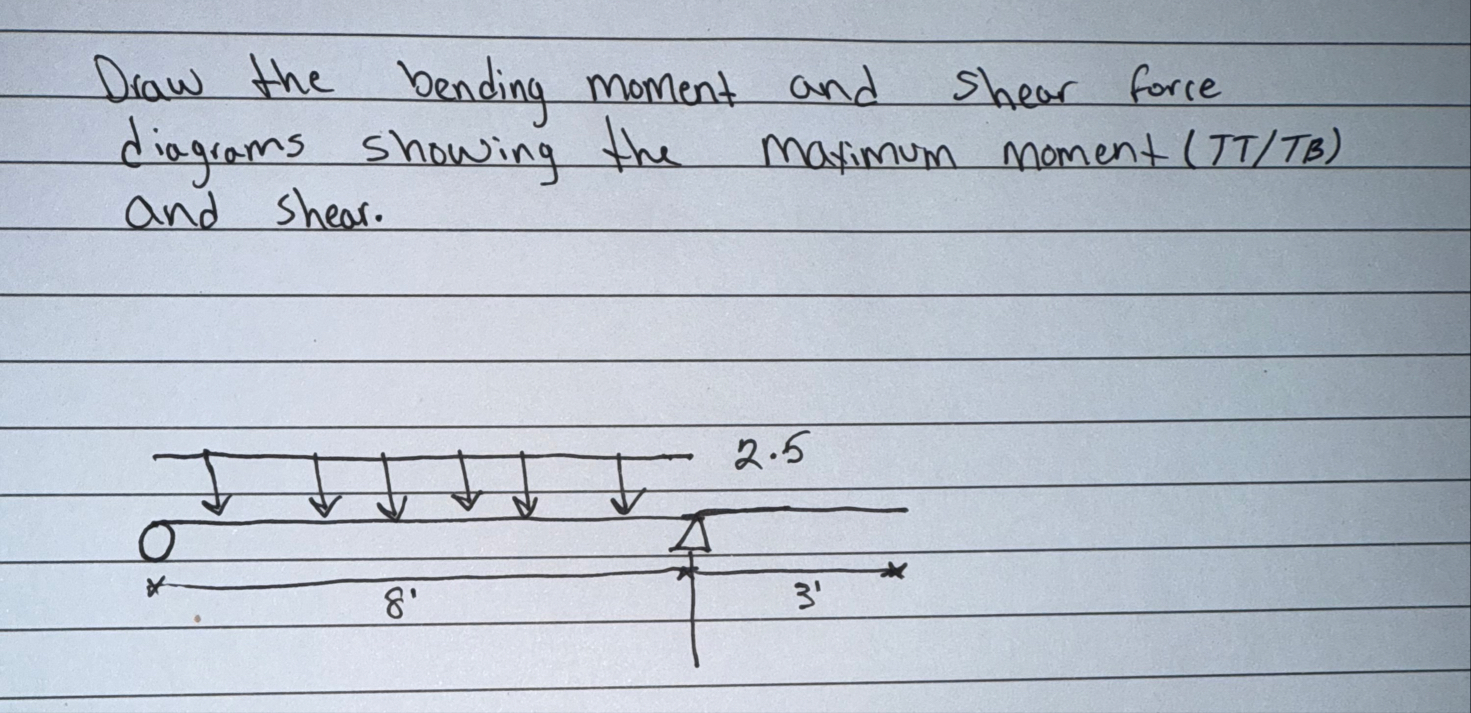 Draw the bending moment and shear force
diagrams showing the maximum moment (TT/TB)
and shear.
2.5
8'
3'